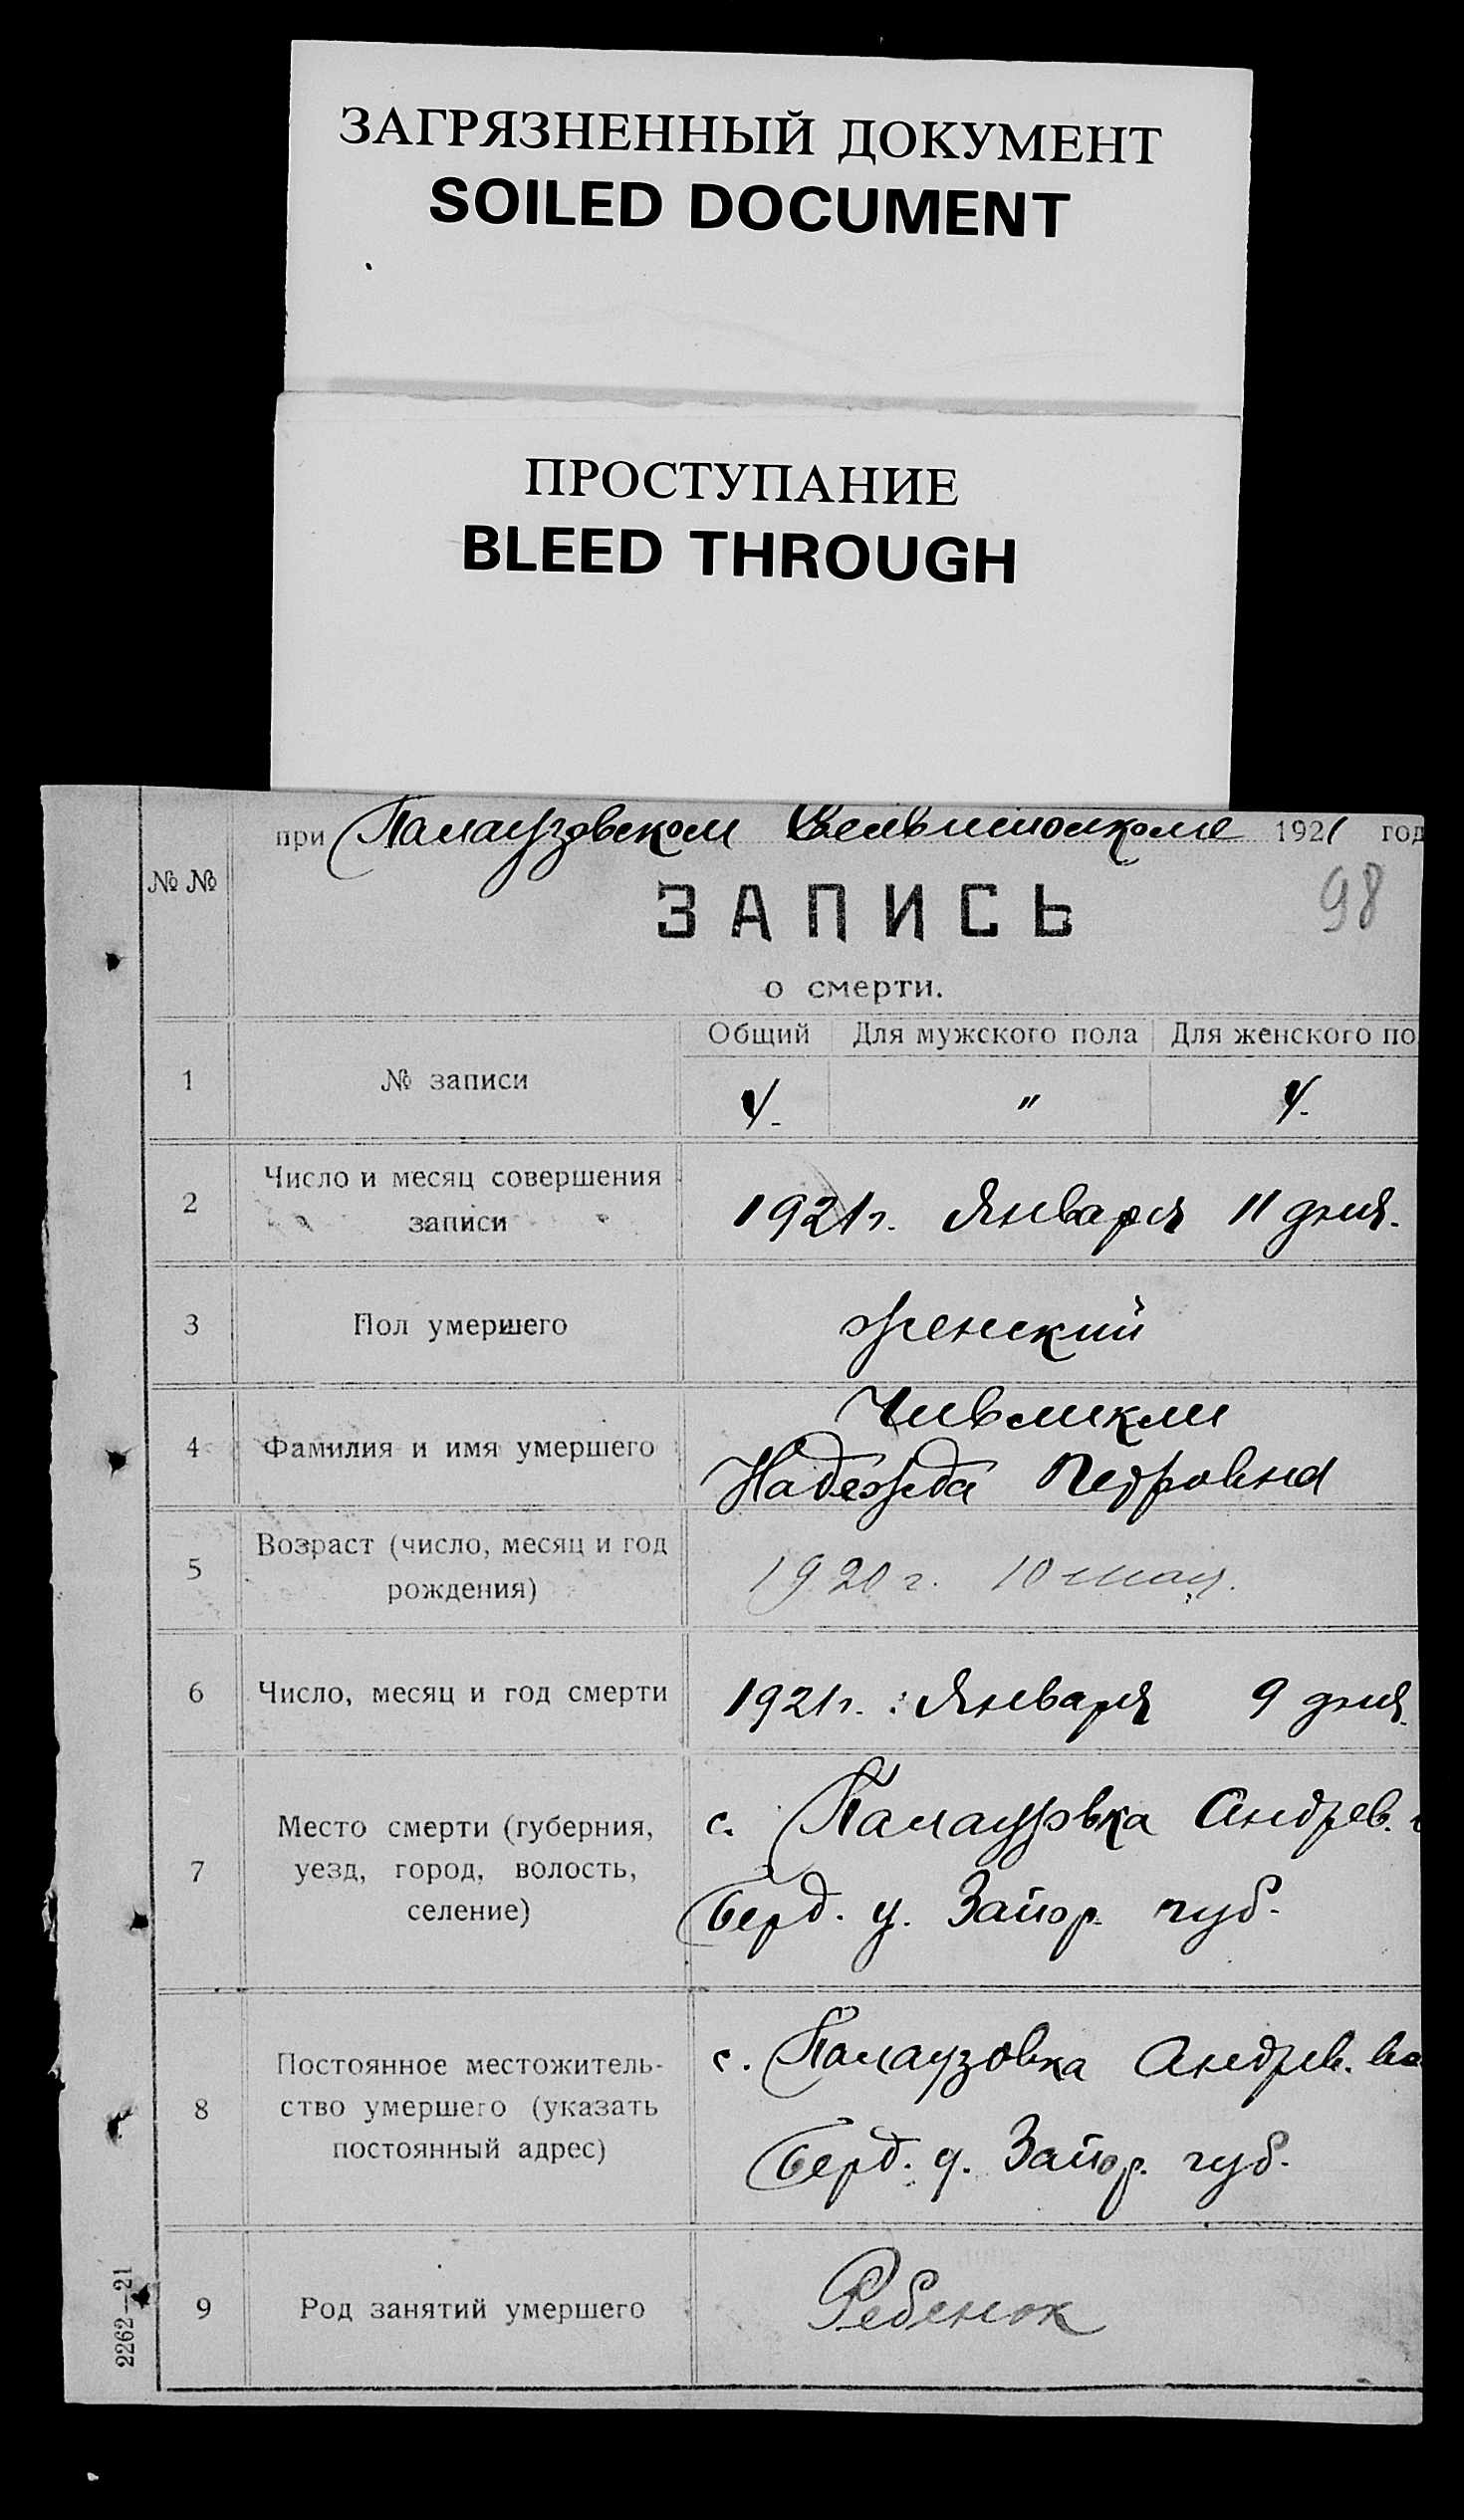 ЗАГРЯЗНЕННЫЙ ДОКУМЕНТ
SOILED DOCUMENT
ПРОСТУПАНИЕ
BLEED THROUGH
при Палаузовском 1921 год
№ №
98
ЗАПИСЬ
о смерти.
Общий Для мужского пола Для женского по
1 № записи 4. " 4.
2 Число и месяц совершения
записи 1921 г. Января 11 дня.
3 Пол умершего женский
4 Фамилия и имя умершего
Надежда Петровна
5 Возраст (число, месяц и год
рождения) 1920 г. 10 мая.
6 Число, месяц и год смерти 1921 г. Января 9 дня.
7 Место смерти (губерния,
уезд, город, волость,
селение)
с. Палаузовка Андрев.
Берд. у. Запор. губ.
8 Постоянное местожитель-
ство умершего (указать
постоянный адрес)
с. Палаузовка Андрев. во
Берд. у. Запор. губ.
9 Род занятий умершего Ребенок
2262—21